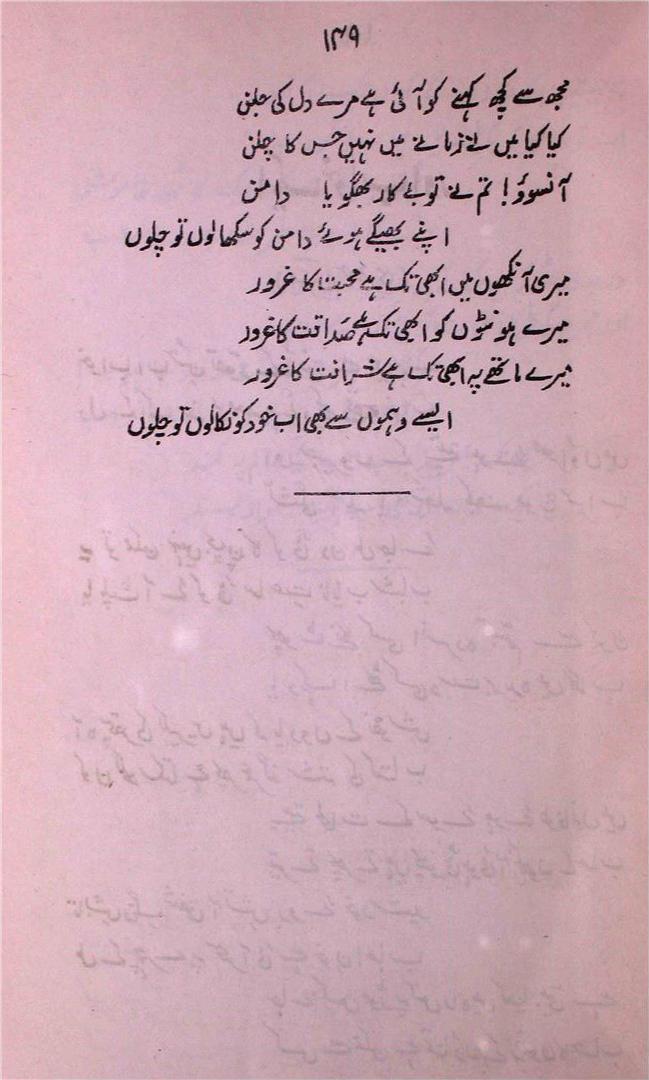 ۱۴۹
مجھ سے کچھ کہنے کو آئی ہے مرے دل کی جلن
کیا کیا میں نے زمانے میں نہیں جس کا چلن
آنسوؤ! تم نے تو بے کار بھگویا دامن
اپنے بھیگے ہوئے دامن کو سکھا لوں تو چلوں
میری آنکھوں میں ابھی تک ہے محبت کا غرور
میرے ہونٹوں کو ابھی تک ہے صداقت کا غرور
میرے ماتھے پہ ابھی تک ہے شرافت کا غرور
ایسے وہموں سے بھی اب خود کو نکالوں تو چلوں